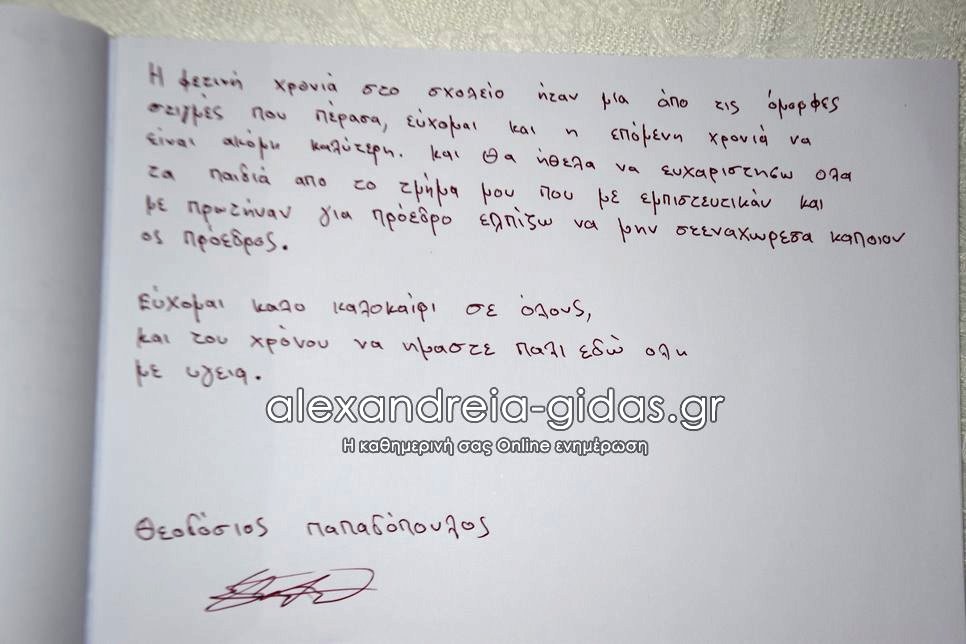 Η φετινή χρονιά στο σχολείο ήταν μία άπο τις όμορφες
στιγμές που πέρασα, εύχομαι και η επόμενη χρονιά να
είναι ακόμη καλύτερη. και θα ήθελα να ευχαριστησω ολα
τα παιδιά απο το τμήμα μου που με εμπιστευτικάν και
με πρωτήναν για πρόεδρο ελπίζω να μην στεναχωρεσα καποιον
ος πρόεδρος.
Εύχομαι καλο καλοκαίρι σε όλους,
και του χρόνου να ημαστε παλι εδώ ολη
με υγεια.
alexandreia-gidas.gr
Η καθημερινή σας Online ενημέρωση
Θεοδόσιος παπαδόπουλος